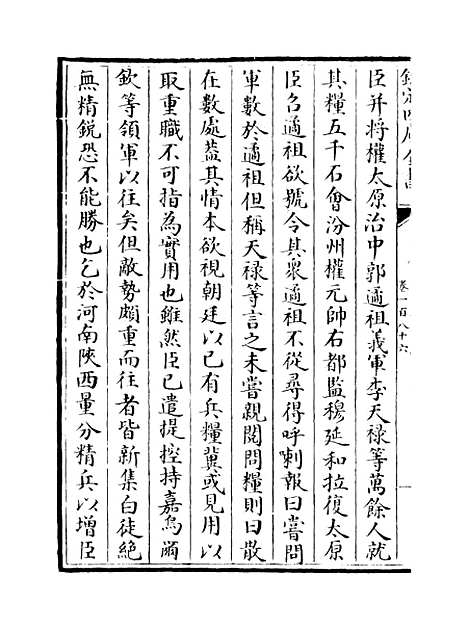 欽定四庫全書
卷一百八十六
臣并將權太原治中郭遹祖義軍李天禄等萬餘人就
其糧五千石會汾州權元帥右都監穆延和拉復太原
臣召遹祖欲號令其衆遹祖不從尋得呼喇報曰嘗問
軍數於遹祖但稱天禄等言之未嘗親閲問糧則曰散
在數處葢其情本欲視朝廷以已有兵糧冀或見用以
取重職不可指為實用也雖然臣已遣提控持嘉烏爾
欽等領軍以往矣但敵勢頗重而往者皆新集白徒絶
無精鋭恐不能勝也乞於河南陝西量分精兵以增臣